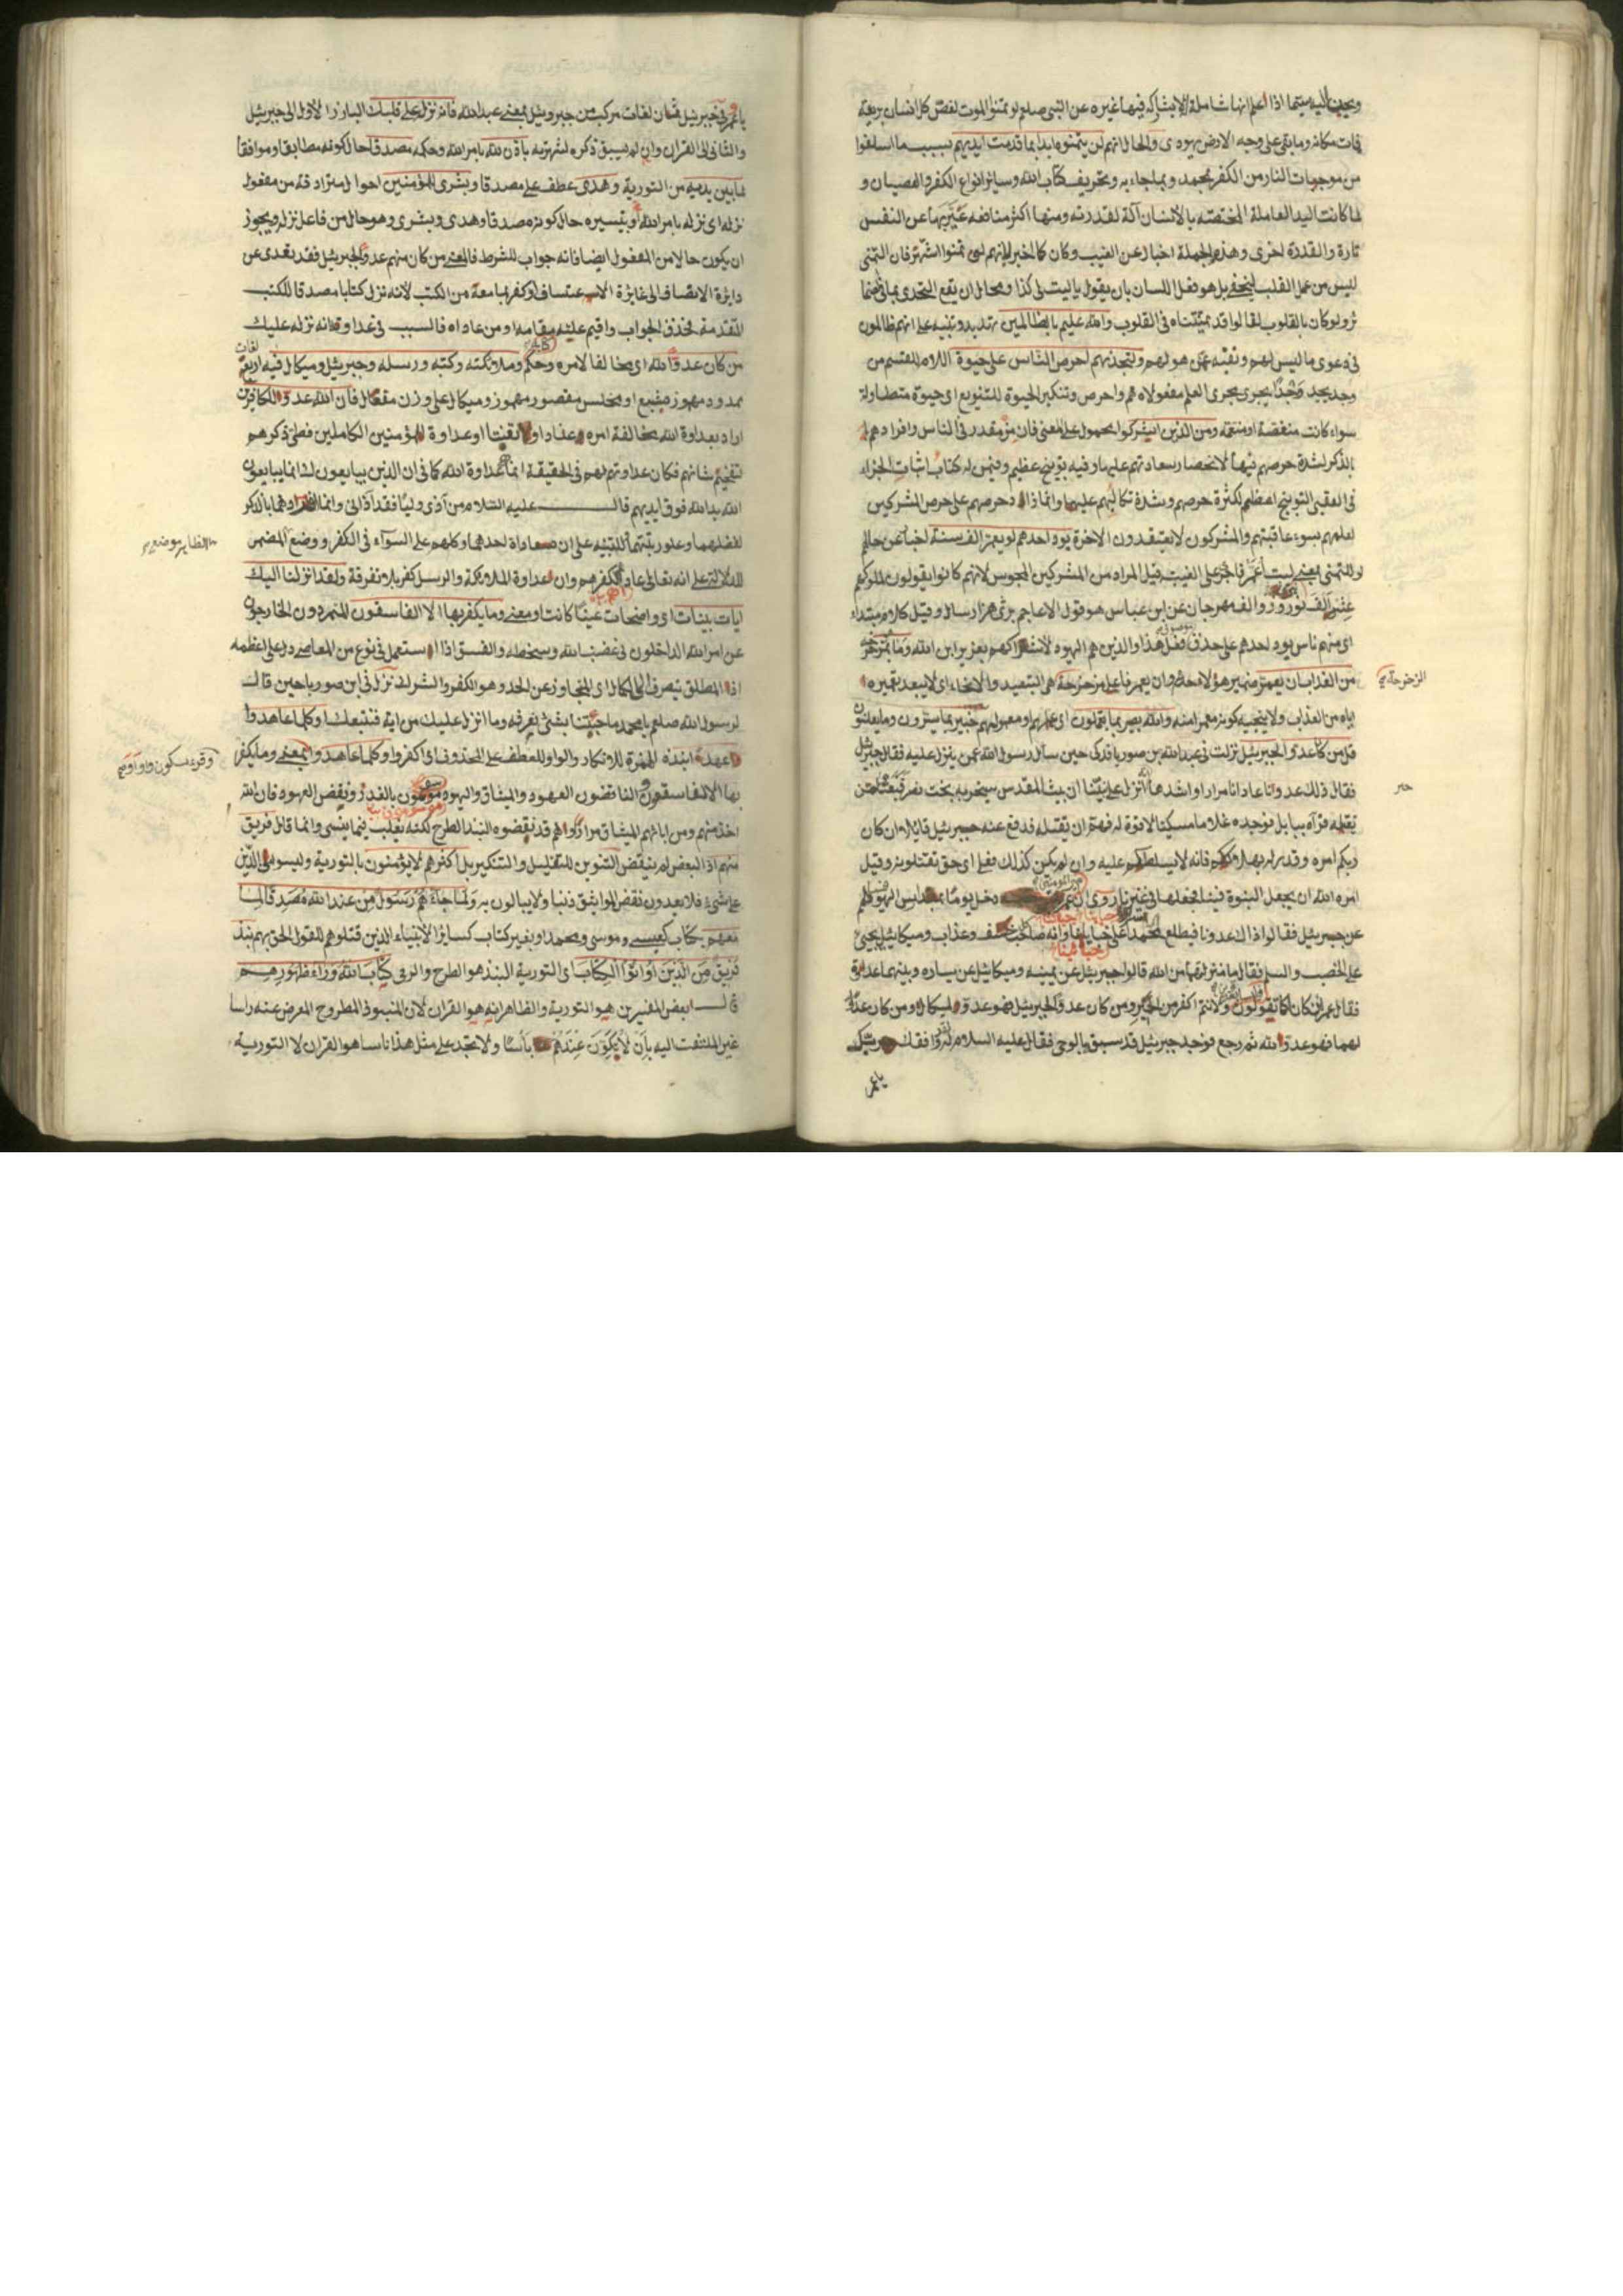 ويحب اليه سيما اذا علم انها شاملة لا يشاركه فيها غيره عن النبي صلم لو تمنوا الموت لغص كل انسان بريقه
فات مكانه وما بقى على وجه الارض يهودى والحال انهم لن يتمنوه ابدا بما قدمت ايديهم بسبب ما اسلفوا
من موجبات النار من الكفر بمحمد وبما جاء به وتحريف كتاب الله وساير انواع الكفر والعصيان و
لما كانت اليد العاملة المختصة بالانسان آلة لقدرته ومنها اكثر منافعه عبر بها عن النفس
تارة والقدرة اخرى وهذه الجملة اخبار عن الغيب وكان كما اخبر لانهم لو تمنوا اشتهر فان التمنى
ليس من عمل القلب ليخفى بل هو فعل اللسان بان يقول ياليت لى كذا ومحال ان يقع التحدى بما فى
ثم لو كان بالقلوب لقالوا قد تمنيناه فى القلوب والله عليم بالظالمين تهديد وتنبيه على انهم ظالمون
فى دعوى ما ليس لهم ونفيه عمن هو لهم ولتجدنهم احرص الناس على حيوة اللام للقسم من
وجد يجد وجدًا يجرى مجرى العلم مفعولاه هم واحرص وتنكير الحيوة للتنويع اى حيوة متطاولة
سواء كانت منغصة او منعمة ومن الذين اشركوا محمول على المعنى فان من مقدر فى الناس وافرادهم
بالذكر لشدة حرصهم فيها لانحصار سعادتهم عليها وفيه توبيخ عظيم وفيمن له كتاب اثبات الجزاء
فى العقبى التوبيخ اعظم لكثرة حرصهم وشدة تكالبهم عليها وانما زاد حرصهم على حرص المشركين
لعلمهم بسوء عاقبتهم والمشركون لا يعتقدون الاخرة يود احدهم لو يعمر الف سنة اخبار عن حالهم
لو للتمنى بمعنى ليت اعمر فاجرى على الغيبة قيل المراد من المشركين المجوس لانهم كانوا يقولون لملوكهم
عش الف نوروز والف مهرجان عن ابن عباس هو قول الاعاجم زى هزار سال وقيل كلام مبتداء
اى منهم ناس يود احدهم على حذف فعل هذا والذين هم اليهود لاشراكهم بعزير ابن الله وما بمزحزحه
من العذاب ان يعمر ضمير هو لاحدهم وان يعمر فاعل مزحزحة هى التبعيد والانحاء اى لا يبعد تعميره
اياه من العذاب ولا ينجيه كونه معمرا منه والله بصير بما يعملون اى عملهم ومعمولهم خبير بما يسترون وما يعلنون
قل من كان عدوا لجبريل نزلت فى عبدالله بن صوريا فدكى حين سأل رسول الله عمن ينزل عليه فقال جبريل
فقال ذلك عدونا عادانا مرارا واشدها انزل على نبينا ان بيت المقدس سيخربه بخت نصر فبعثنا من
يقتله فرآه ببابل فوجده غلاما مسكينا لا قوة له فهم ان يقتله فدفع عنه جبريل قائلا ان كان
ربكم امره وقدر له بهلاككم فانه لا يسلطكم عليه وان لم يكن كذلك فعلى اى حق تقتلونه وقيل
امره الله ان يجعل النبوة فينا فجعلها فى غيرنا روى ان عمر دخل يوما بمدارس اليهود فسالهم
عن جبريل فقالوا ذاك عدونا فيطلع محمدا على خبايانا وانه صاحب خسف وعذاب وميكائيل يجئ
على الخصب والسلم فقال ما منزلتهما من الله قالوا جبريل عن يمينه وميكائيل عن يساره وبينهما عداوة
فقال عمر ان كان كما تقولون ولانتم اكفر من الحمير ومن كان عدوا لجبريل فهو عدو لميكال ومن كان عدوا
لهما فهو عدو الله ثم رجع فوجد جبريل قد سبق بالوحى فقال عليه السلام لقد وافقك ربك
يا عمر
يا عمر فى جبريل ثمان لغات مركب من جبر وئيل بمعنى عبدالله فانه نزله على قلبك البارز الاول الى جبريل
والثانى الى القران وان لم يسبق ذكره لشهرته باذن الله بامر الله وحكمه مصدقا حال كونه مطابقا وموافقا
لما بين يديه من التورية وهدى عطف على مصدقا وبشرى للمؤمنين احوال مترادفة من مفعول
نزله اى نزله بامر الله وتيسيره حال كونه مصدقا وهدى وبشرى وهو حال من فاعل نزله ويجوز
ان يكون حالا من المفعول ايضا فانه جواب للشرط فالمعنى من كان منهم عدوا لجبريل فقد تعدى عن
دايرة الانصاف الى غايرة الاعتساف او كفر بما معه من الكتب لانه نزل كتابا مصدقا للكتب
المتقدمة فحذف الجواب واقيم علته مقامه او من عاداه فالسبب فى عداوته انه نزله عليك
من كان عدوا لله اى مخالفا لامره وحكمه وملائكته وكتبه ورسله وجبريل وميكال فيه اربع لغات
ممدود مهموز مشبع او مختلس مقصور مهموز وميكال على وزن مفعال فان الله عدو للكافرين
اراد بعداوة الله مخالفة امره عنادا وتعنتا او عداوة المؤمنين الكاملين فطى ذكرهم
لتفخيم شانهم فكان عداوتهم لهم فى الحقيقة انما عداوة الله كما فى ان الذين يبايعونك انما يبايعون
الله يد الله فوق ايديهم قال عليه السلام من آذى وليا فقد آذانى وانما افردهما بالذكر
لفضلهما وعلو رتبتهما للتنبيه على ان معاداة احدهما وكلهم على السواء فى الكفر ووضع المضمر
للدلالة على انه تعالى عاداهم لكفرهم وان عداوة الملائكة والرسل كفر بلا تفرقة ولقد انزلنا اليك
ايات بينات اى واضحات عينا كانت او معنى وما يكفر بها الا الفاسقون المتمردون الخارجون
عن امر الله الداخلون فى غضب الله وسخطه والفسق اذا استعمل فى نوع من المعاصى دل على اعظمه
اذ المطلق ينصرف الى الكامل اى المتجاوز عن الحد وهو الكفر والشرك نزل فى ابن صوريا حين قال
لرسول الله صلعم يا محمد ما جئتنا بشئ نعرفه وما انزل عليك من اية فنتبعك او كلما عاهدوا
عهدا نبذه الهمزة للانكار والواو للعطف على المحذوف اى اكفروا وكلما عاهدوا بمعنى وما يكفر
بها الا الفاسقون الناقضون العهود والميثاق واليهود موسومون بالغدر ونقض العهود فان الله
اخذ منهم ومن ابائهم الميثاق مرارا وهم قد نقضوه النبذ الطرح لكنه يغلب فيما ينسى وانما قال فريق
منهم اذ البعض لم ينقض التنوين للتقليل والتنكير بل اكثرهم لا يؤمنون بالتورية وليسوا من الدين
على شئ فلا يعدون نقض المواثيق ذنبا ولا يبالون به ولما جاءهم رسول من عند الله مصدق لما
معهم بكتاب كعيسى وموسى ومحمد او بغير كتاب كساير الانبياء الذين قتلوهم للقول الحق بهم نبذ
فريق من الذين اوتوا الكتاب اى التورية النبذ هو الطرح والرمى كتاب الله وراء ظهورهم
قال بعض المفسرين هو التورية والظاهر انه هو القران لان المنبوذ المطروح المعرض عنه راسا
غير الملتفت اليه بان لا يكون عندهم باسا ولا نجد على مثل هذا ناسا هو القران لا التورية
الزحزحة
الظاهر موضع
وقرء بسكون واو